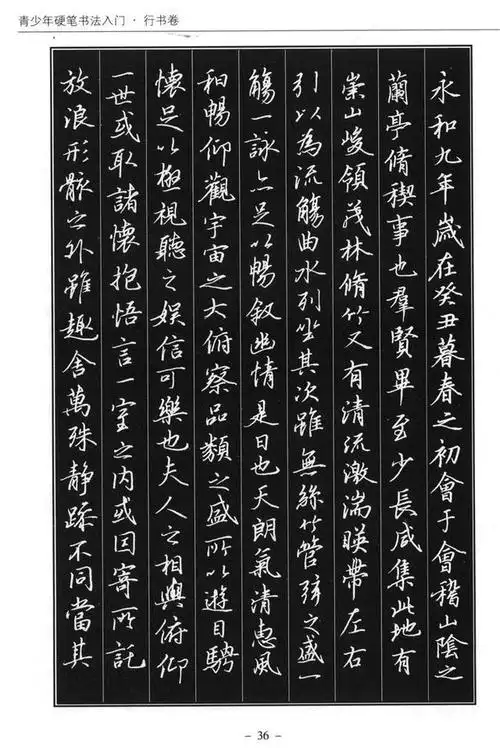 青少年硬笔书法入门 · 行书卷
永和九年歲在癸丑暮春之初會于會稽山陰之
蘭亭脩稧事也羣賢畢至少長咸集此地有
崇山峻領茂林脩竹又有清流激湍暎帶左右
引以為流觴曲水列坐其次雖無絲竹管弦之盛一
觴一詠亦足以暢叙幽情是日也天朗氣清惠風
和暢仰觀宇宙之大俯察品類之盛所以遊目騁
懷足以極視聽之娱信可樂也夫人之相與俯仰
一世或取諸懷抱悟言一室之內或因寄所託
放浪形骸之外雖趣舍萬殊静躁不同當其
- 36 -